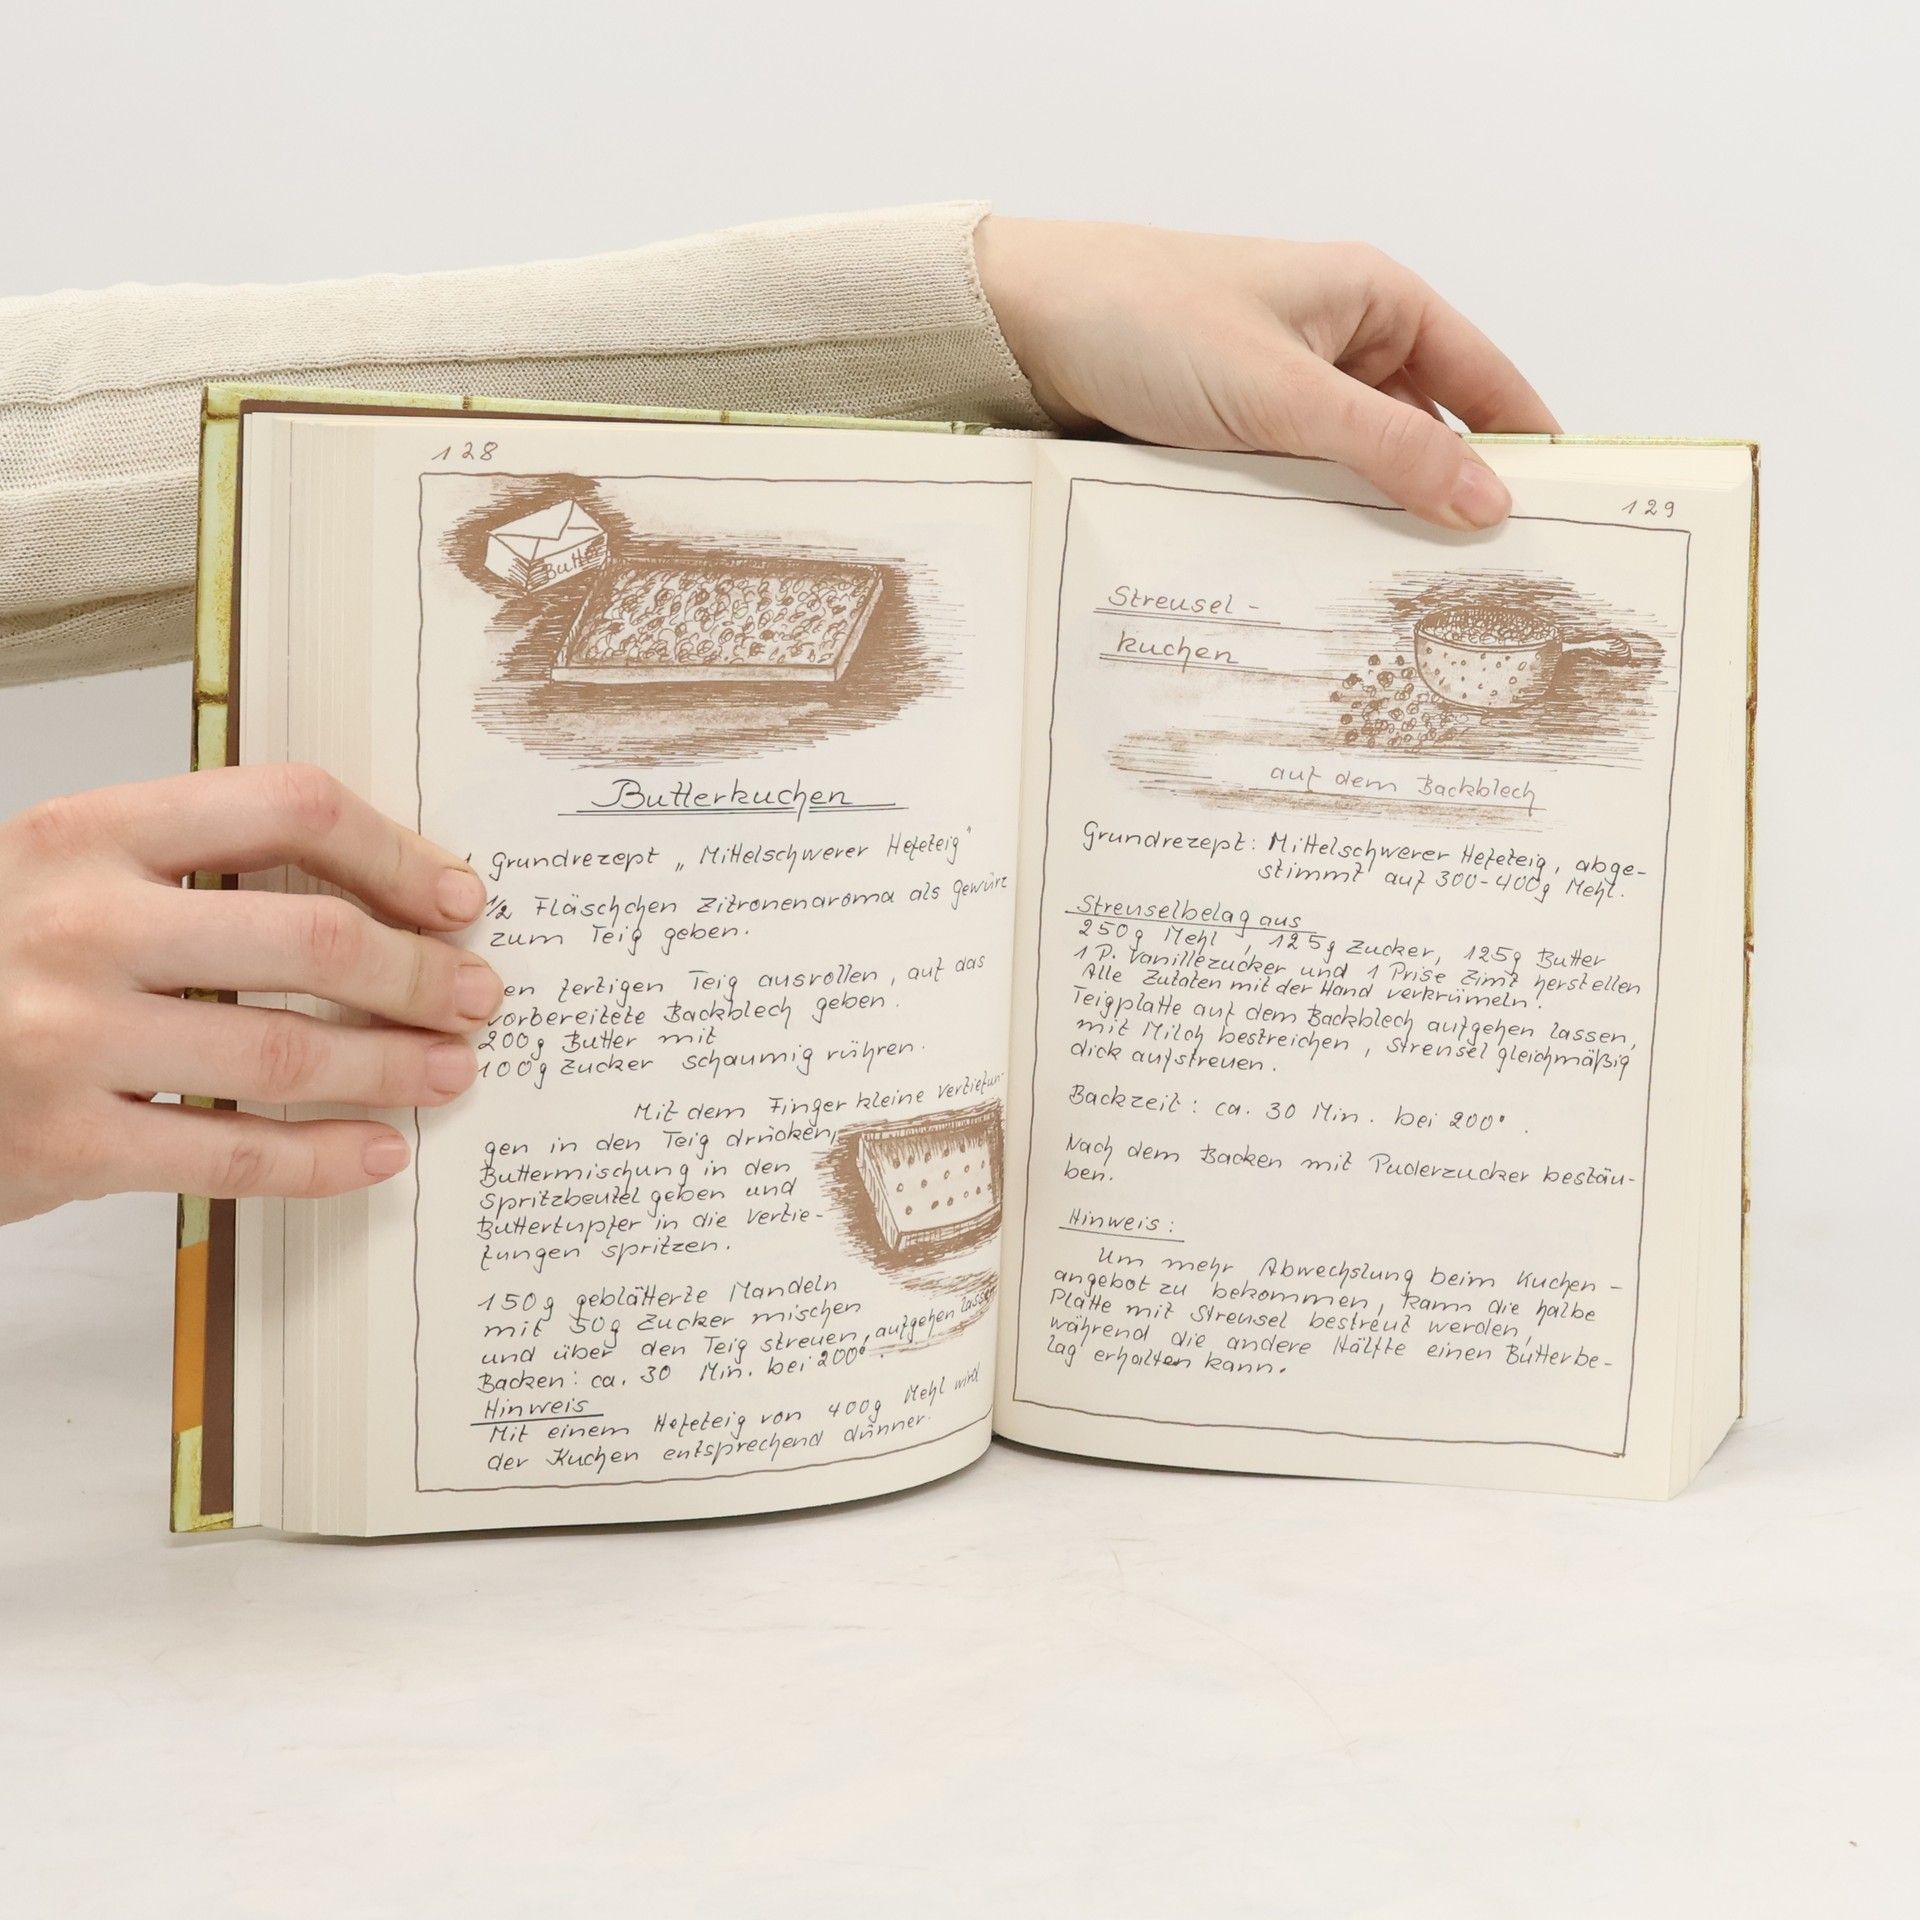 128
Butter
Butterkuchen
1 Grundrezept „Mittelschwerer Hefeteig"
1/2 Fläschchen Zitronenaroma als Gewürz
zum Teig geben.
en fertigen Teig ausrollen, auf das
vorbereitete Backblech geben.
200g Butter mit
100g Zucker schaumig rühren.
Mit dem Finger kleine Vertiefun-
gen in den Teig drücken,
Buttermischung in den
Spritzbeutel geben und
Buttertupfer in die Vertie-
fungen spritzen.
150g geblätterte Mandeln
mit 50g Zucker mischen
und über den Teig streuen, aufgehen lassen
Backen: ca. 30 Min. bei 200°.
Hinweis
Mit einem Hefeteig von 400g Mehl wird
der Kuchen entsprechend dünner.
129
Streusel-
kuchen
auf dem Backblech
Grundrezept: Mittelschwerer Hefeteig, abge-
stimmt auf 300-400g Mehl.
Streuselbelag aus
250g Mehl, 125g Zucker, 125g Butter
1 P. Vanillezucker und 1 Prise Zimt herstellen
Alle Zutaten mit der Hand verkrümeln!
Teigplatte auf dem Backblech aufgehen lassen,
mit Milch bestreichen, Streusel gleichmäßig
dick aufstreuen.
Backzeit: ca. 30 Min. bei 200°.
Nach dem Backen mit Puderzucker bestäu-
ben.
Hinweis:
Um mehr Abwechslung beim Kuchen-
angebot zu bekommen, kann die halbe
Platte mit Streusel bestreut werden,
während die andere Hälfte einen Butterbe-
lag erhalten kann.